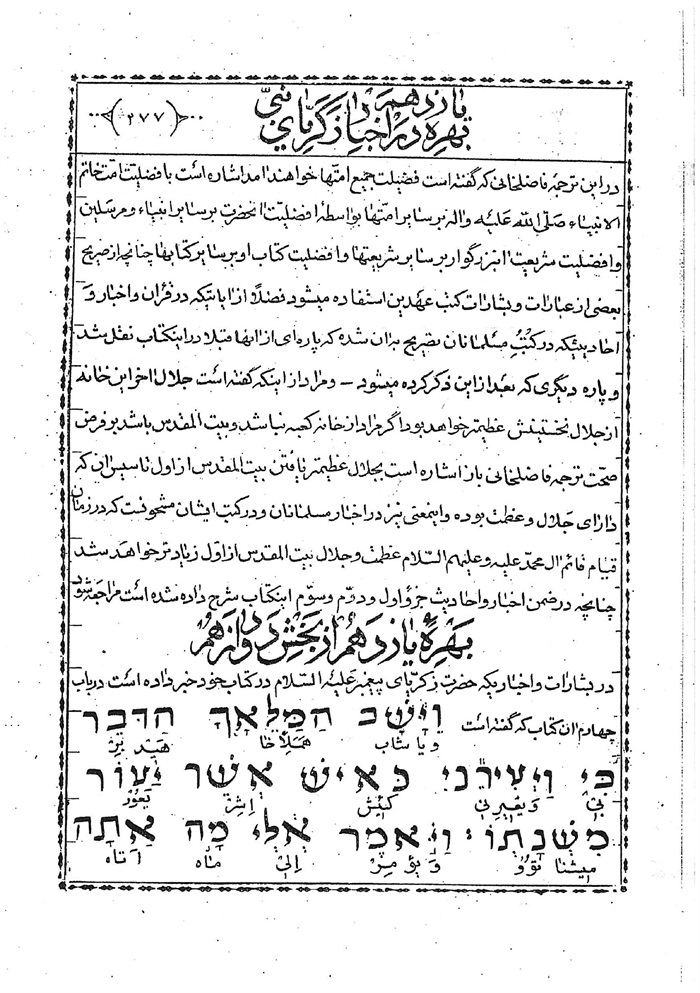 یازدهم
بهره در اخبار زکریای نبی
﴿۲۷۷﴾
در این ترجمهٔ فاضلخانی که گفته است فضیلت جمیع امتها خواهند امد اشاره است بافضلیت امت خاتم
الانبیاء صلی الله علیه واله بر سایر امتها بواسطهٔ افضلیت انحضرت بر سایر انبیاء و مرسلین
و افضلیت شریعت انبزرگوار بر سایر شریعتها و افضلیت کتاب او بر سایر کتابها چنانچه از صریح
بعضی از عبارات و بشارات کتب عهدین استفاده میشود فضلا از ایاتیکه در قران و اخبار و
احادیثیکه در کتب مسلمانان تصریح بدان شده که پاره‌ای از انها قبلا در اینکتاب نقل شد
و پاره دیگری که بعد از این ذکر کرده میشود – و مراد از اینکه گفته است جلال اخر این خانه
از جلال نخستینش عظیمتر خواهد بود اگر مراد از خانه کعبه نباشد و بیت المقدس باشد بر فرض
صحت ترجمه فاضلخانی باز اشاره است بجلال عظیمتر یافتن بیت المقدس از اول تاسیس ان که
دارای جلال و عظمت بوده و اینمعنی نیز در اخبار مسلمانان و در کتب ایشان مشحونست که در زمان
قیام قائم ال محمد علیه و علیهم السلام عظمت و جلال بیت المقدس از اول زیادتر خواهد شد
چنانچه در ضمن اخبار و احادیث جزو اول و دوم و سوم اینکتاب شرح داده شده است مراجعه شود
بهره یازدهم از بخش دوازدهم
در بشارات و اخباریکه حضرت زکریای پیغمبر علیه السلام در کتاب خود خبر داده است در باب
چهارم ان کتاب که گفته است וַיָּשָׁב הַמַּלְאָךְ הַדֹּבֵר
ویاشاب هملاخا هیدبر
בִּי וַיְעִירֵנִי כְּאִישׁ אֲשֶׁר יֵעוֹר
بی ویعیرنی کئیش اشر یعور
מִשְּׁנָתוֹ׃ וַיֹּאמֶר אֵלַי מָה אַתָּה
میشنا توو ویؤمر الی ماه اتاه